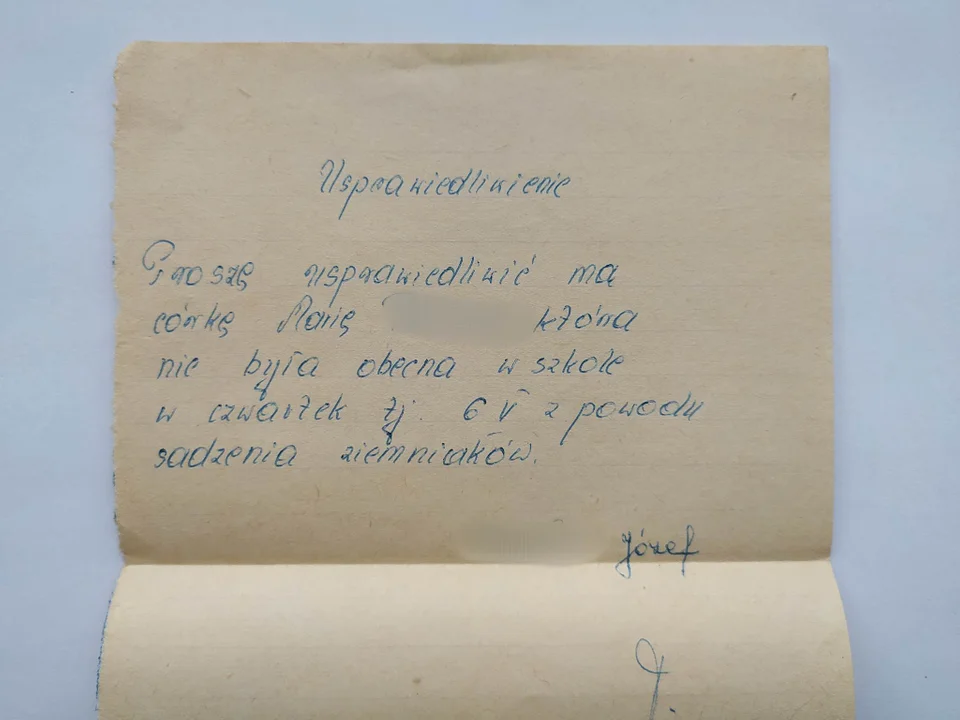 Usprawiedliwienie
Proszę usprawiedliwić mą
córkę Marię która
nie była obecna w szkole
w czwartek tj. 6 V z powodu
sadzenia ziemniaków.
Józef